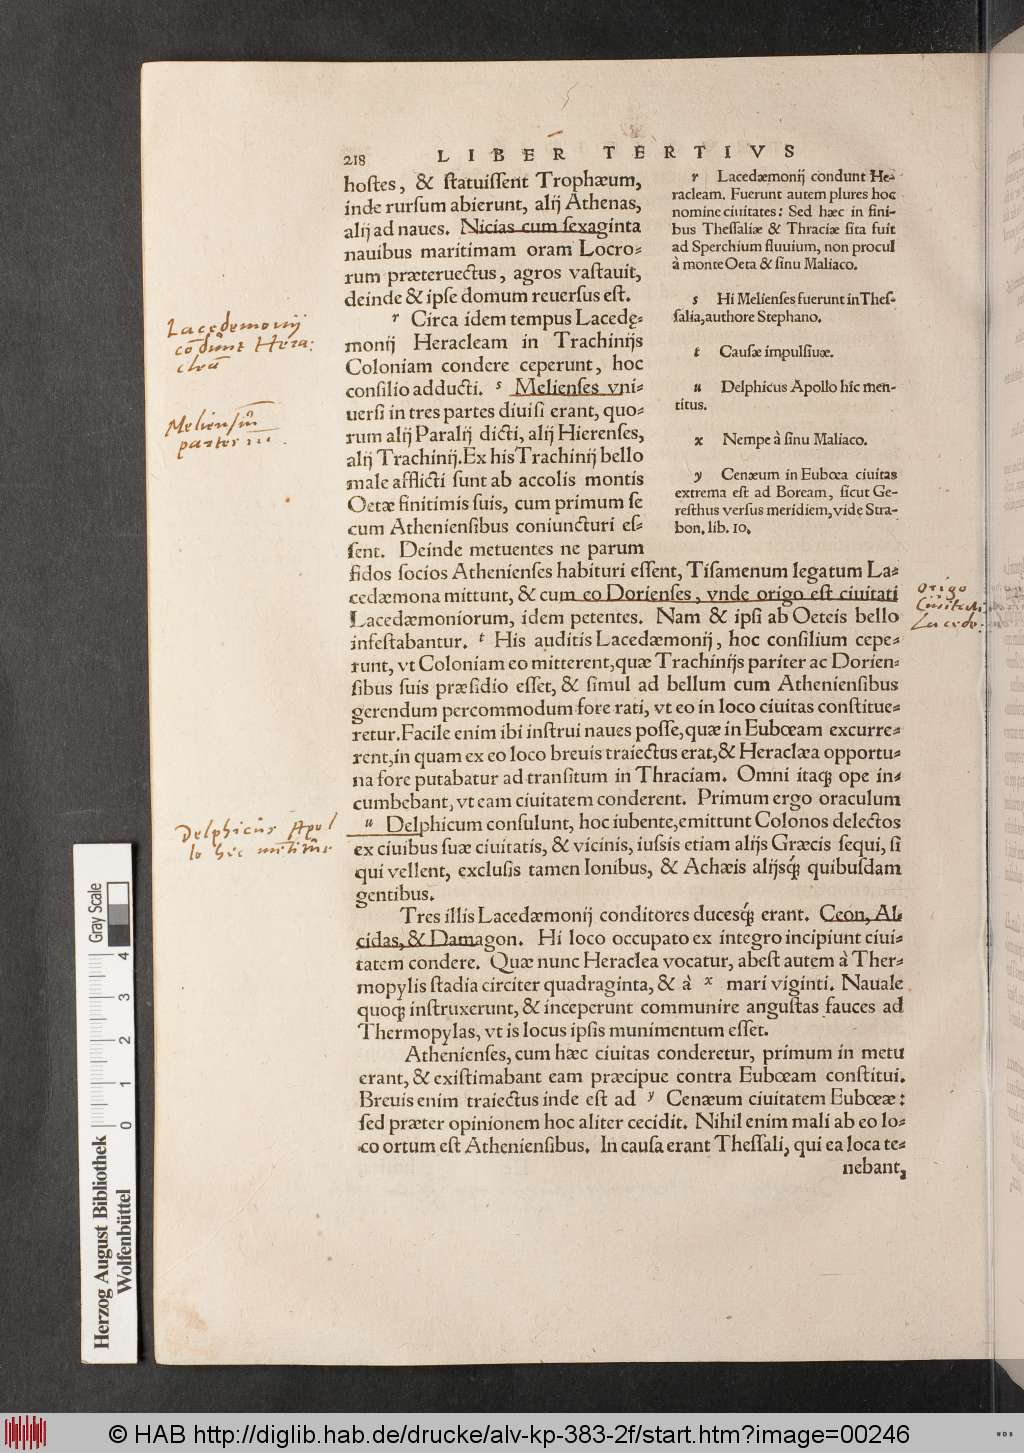 218 LIBER TERTIVS
hostes, & statuissent Trophæum,
inde rursum abierunt, alij Athenas,
alij ad naues. Nicias cum sexaginta
nauibus maritimam oram Locro-
rum præteruectus, agros vastauit,
deinde & ipse domum reuersus est.
r Circa idem tempus Lacedę-
monij Heracleam in Trachinijs
Coloniam condere ceperunt, hoc
consilio adducti. s Melienses vni-
uersi in tres partes diuisi erant, quo-
rum alij Paralij dicti, alij Hierenses,
alij Trachinij. Ex his Trachinij bello
male afflicti sunt ab accolis montis
Oetæ finitimis suis, cum primum se
cum Atheniensibus coniuncturi es-
sent. Deinde metuentes ne parum
r Lacedæmonij condunt He-
racleam. Fuerunt autem plures hoc
nomine ciuitates: Sed hæc in fini-
bus Thessaliæ & Thraciæ sita fuit
ad Sperchium fluuium, non procul
à monte Oeta & sinu Maliaco.
s Hi Melienses fuerunt in Thes-
salia, authore Stephano.
t Causæ impulsiuæ.
u Delphicus Apollo hic men-
titus.
x Nempe à sinu Maliaco.
y Cenæum in Eubœa ciuitas
extrema est ad Boream, sicut Ge-
resthus versus meridiem, vide Stra-
bon. lib. 10.
Lacedemonij
cōdūnt Hera:
cleā
Meliensiū
partes iii.
fidos socios Athenienses habituri essent, Tisamenum legatum La-
cedæmona mittunt, & cum eo Dorienses, vnde origo est ciuitati
Lacedæmoniorum, idem petentes. Nam & ipsi ab Oeteis bello
infestabantur. t His auditis Lacedæmonij, hoc consilium cepe-
runt, vt Coloniam eo mitterent, quæ Trachinijs pariter ac Dorien-
sibus suis præsidio esset, & simul ad bellum cum Atheniensibus
gerendum percommodum fore rati, vt eo in loco ciuitas constitue-
retur. Facile enim ibi instrui naues posse, quæ in Eubœam excurre-
rent, in quam ex eo loco breuis traiectus erat, & Heraclæa opportu-
na fore putabatur ad transitum in Thraciam. Omni itaq; ope in-
cumbebant, vt eam ciuitatem conderent. Primum ergo oraculum
u Delphicum consulunt, hoc iubente, emittunt Colonos delectos
ex ciuibus suæ ciuitatis, & vicinis, iussis etiam alijs Græcis sequi, si
qui vellent, exclusis tamen Ionibus, & Achæis alijsq́; quibusdam
gentibus.
Origo
Ciuitati
Lacede:
Delphicus Apol
lo hic mētitus
Tres illis Lacedæmonij conditores ducesq́; erant. Ceon, Al-
cidas, & Damagon. Hi loco occupato ex integro incipiunt ciui-
tatem condere. Quæ nunc Heraclea vocatur, abest autem à Ther-
mopylis stadia circiter quadraginta, & à x mari viginti. Nauale
quoq; instruxerunt, & inceperunt communire angustas fauces ad
Thermopylas, vt is locus ipsis munimentum esset.
Athenienses, cum hæc ciuitas conderetur, primum in metu
erant, & existimabant eam præcipue contra Eubœam constitui.
Breuis enim traiectus inde est ad y Cenæum ciuitatem Eubœæ:
sed præter opinionem hoc aliter cecidit. Nihil enim mali ab eo lo-
co ortum est Atheniensibus. In causa erant Thessali, qui ea loca te-
nebant,
Gray Scale
0 1 2 3 4
Herzog August Bibliothek
Wolfenbüttel
© HAB http://diglib.hab.de/drucke/alv-kp-383-2f/start.htm?image=00246